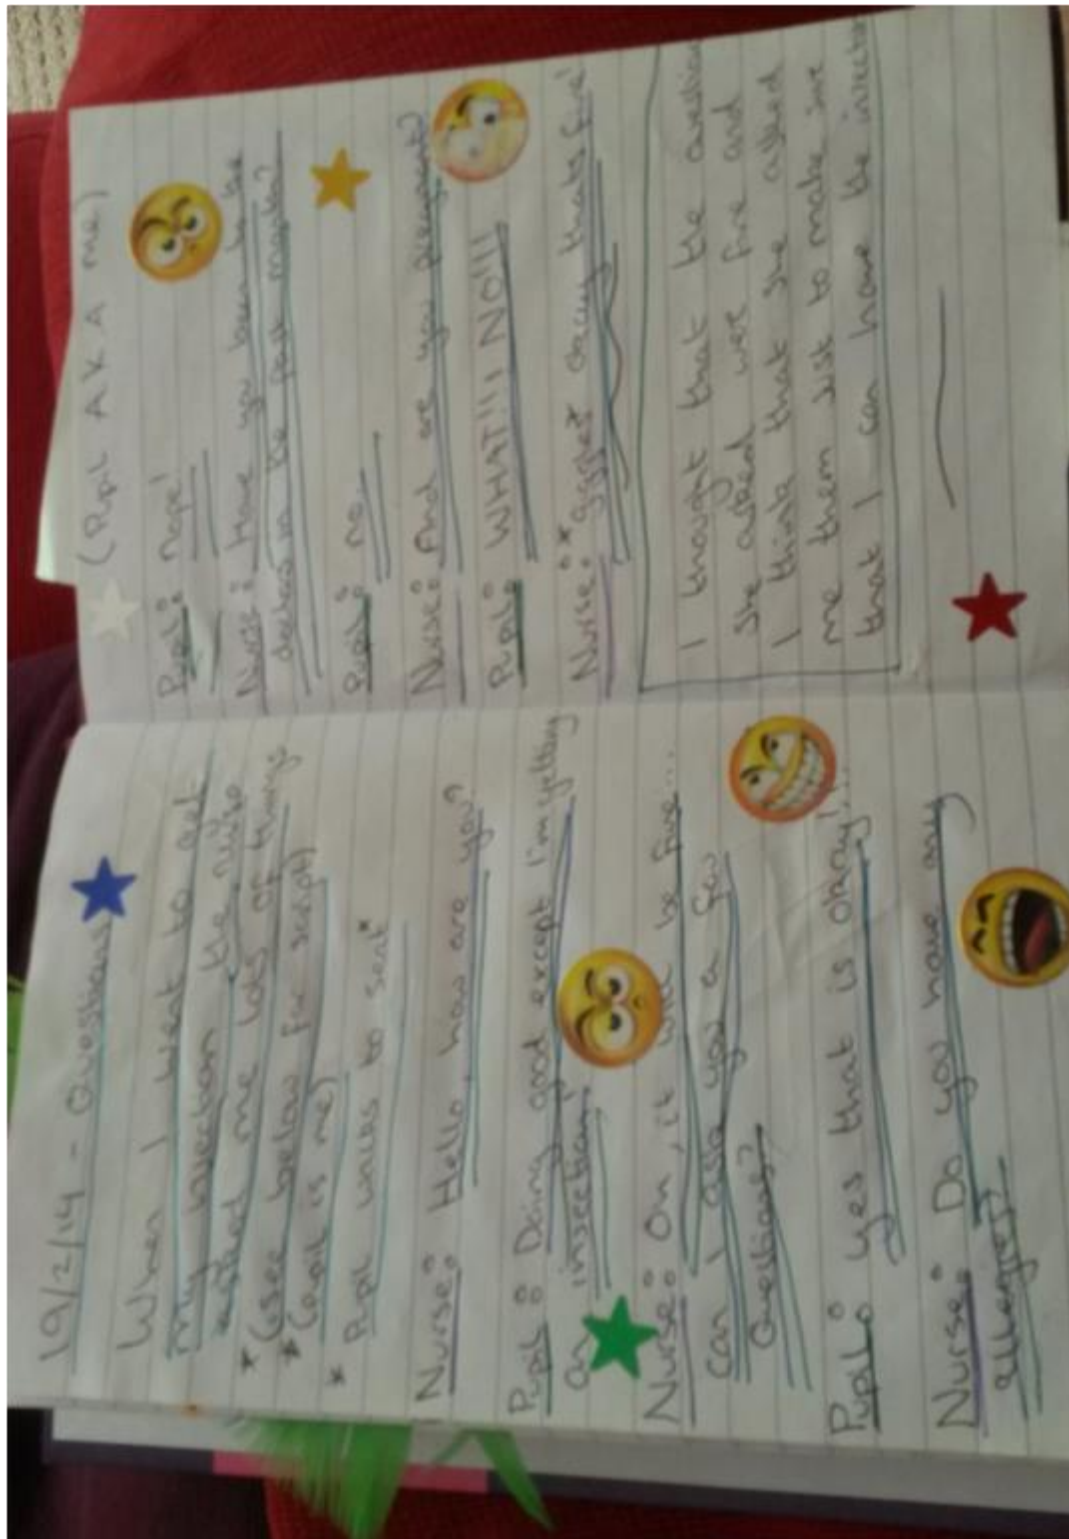 19/2/14 - Questions
When I went to get
my injection the nurse
asked me lots of things
* (see below for script)
* (pupil is me)
* Pupil walks to seat *
Nurse: Hello, how are you?
Pupil: Doing good except I'm getting
an insection!
Nurse: Oh, it will be fine...
Can I ask you a few
Questions?
Pupil: yes that is okay!...
Nurse: Do you have any
(Pupil AKA me)
Pupil: nope!
Nurse: Have you been to the
doctors in the past month?
Pupil: no.
Nurse: And are you pregnant?
Pupil: WHAT!!, NO!!!
Nurse: * okay thats fine!
I thought that the question
she asked were fine and
I think that she asked
me them just to make sure
that I can have the injection